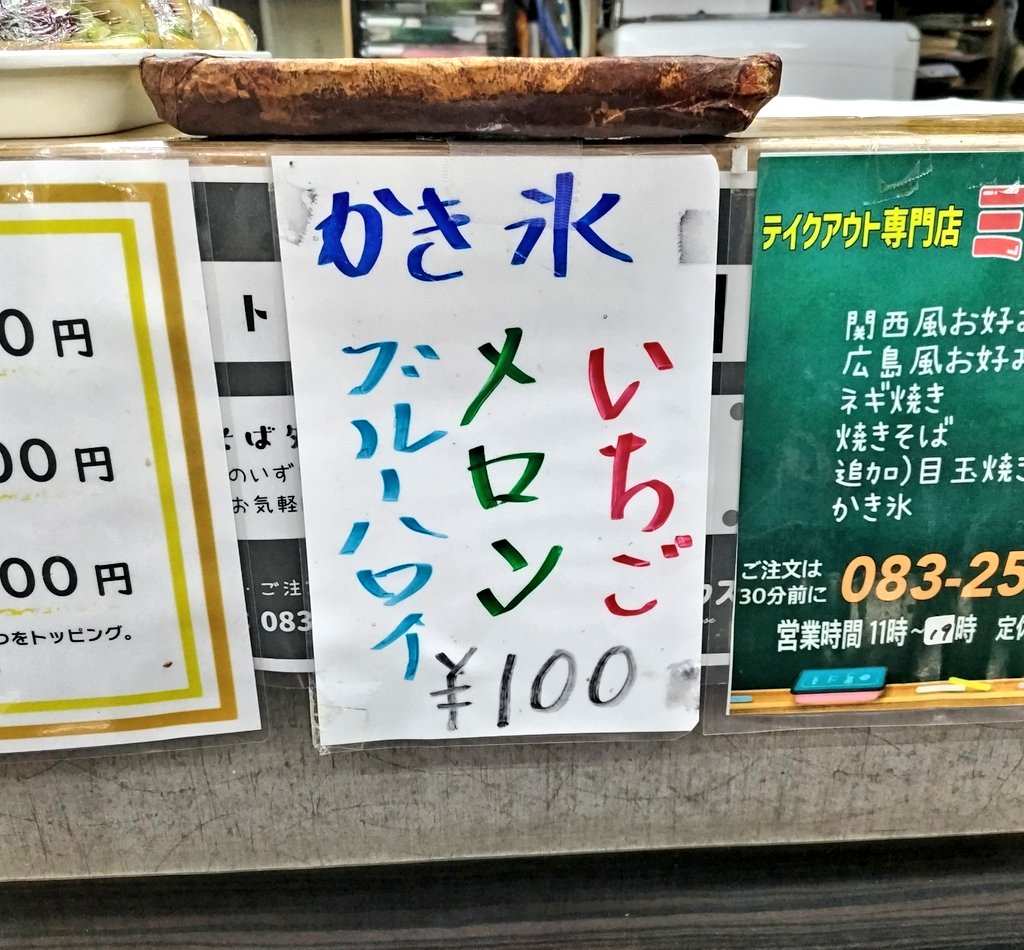 かき氷
いちご
メロン
ブルーハロイ
¥100
0円
00円
00円
つをトッピング。
ト
そば
のいず
お気軽
ご注
083
テイクアウト専門店
関西風お好み
広島風お好み
ネギ焼き
焼きそば
追加)目玉焼き
かき氷
ご注文は
30分前に
083-25
営業時間 11時~19時 定休